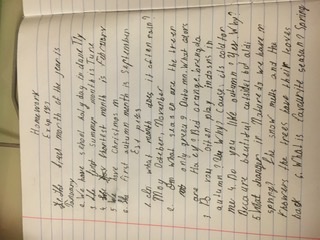 Homework
Exp 151
1. The first month of the year is
January.
2. We have school holiday in June, Jly
3. The first summer month is June
4. The shortest month is February
5. We have christmas in
6. The first autumn month is September
Ex.
1. In what month does it often rain?
May, October, November
2. In what season are the trees
not only green? Outomn. What colors
are they?
3. Do you often play outdoors in
autumn? Why? Cause is cold for
me 4. Do you like autumn? Yes Why?
Because beautiful outside
5. What changer in Nature do we have in
spring? The snow melts and the
flowers, the trees have their leaves
back 6. What is favourite season? Spring